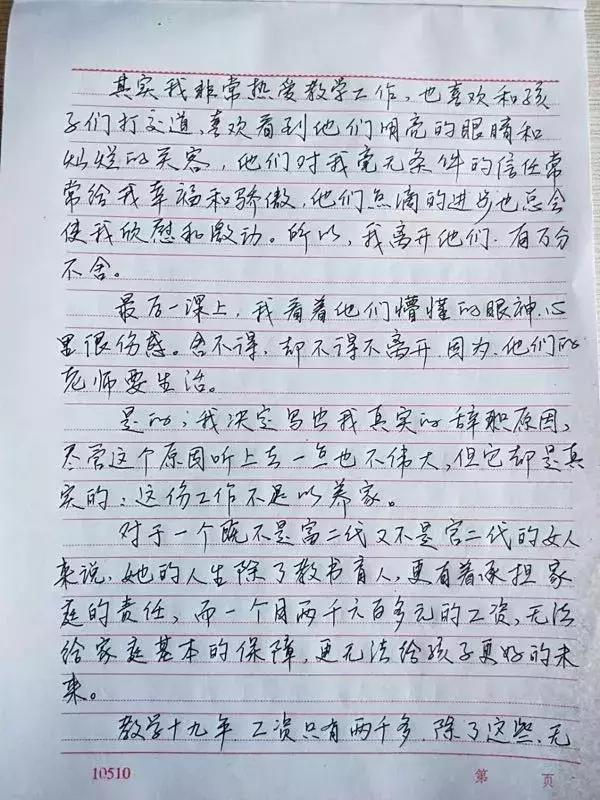 其实我非常热爱教学工作，也喜欢和孩
子们打交道，喜欢看到他们明亮的眼睛和
灿烂的笑容，他们对我毫无条件的信任常
常给我幸福和骄傲，他们点滴的进步也总会
使我欣慰和激动。所以，我离开他们，有万分
不舍。
最后一课上，我看着他们懵懂的眼神，心
里很伤感。舍不得，却不得不离开，因为，他们的
老师要生活。
是的；我决定写出我真实的辞职原因，
尽管这个原因听上去一点也不伟大，但它却是真
实的：这份工作不足以养家。
对于一个既不是富二代又不是官二代的女人
来说，她的人生除了教书育人，更有着承担家
庭的责任，而一个月两千六百多元的工资，无法
给家庭基本的保障，更无法给孩子更好的未
来。
教学十九年，工资只有两千多，除了这些，无
10510 第 页